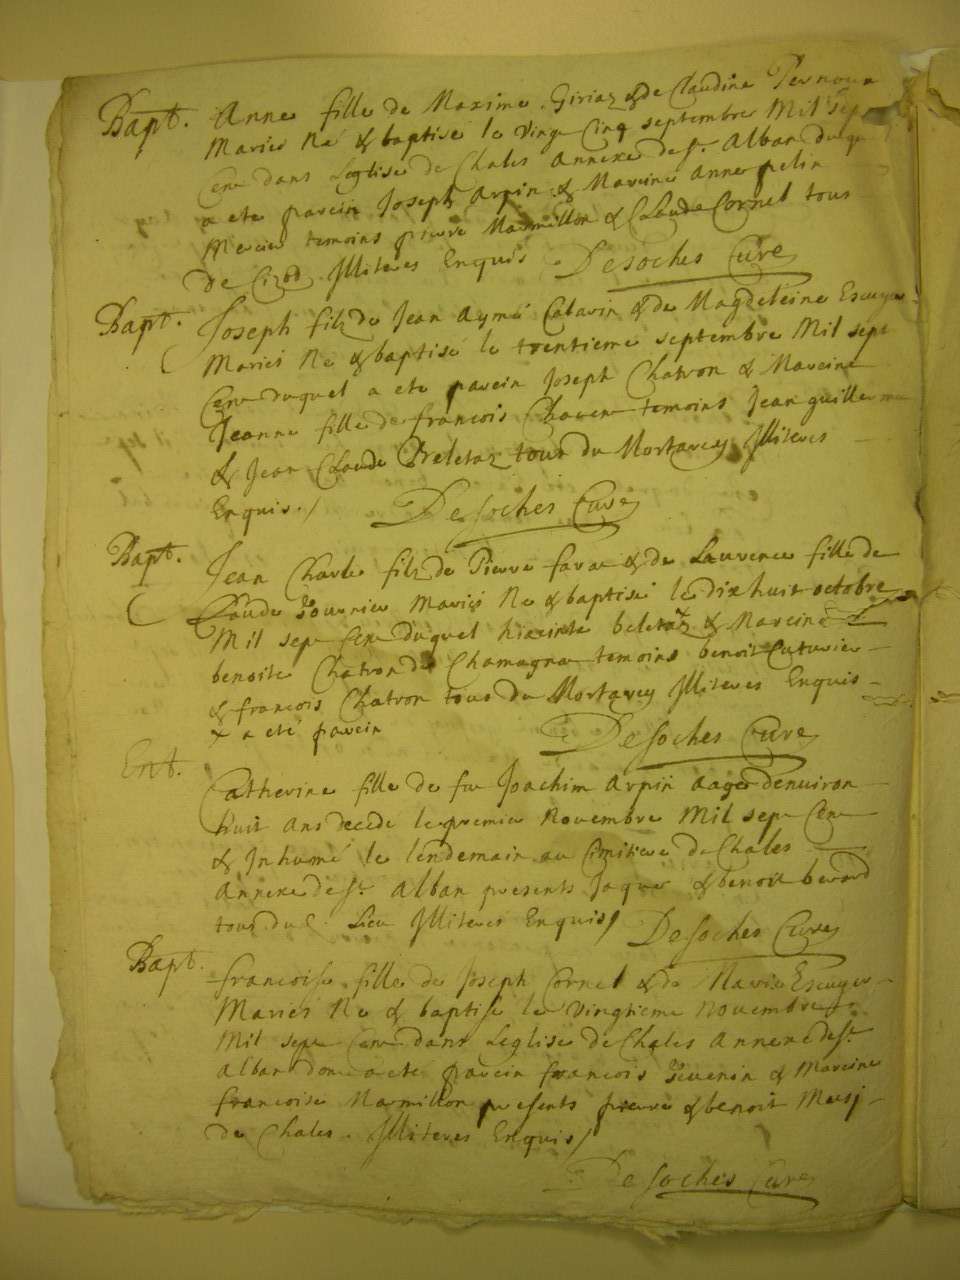 Bapt. Anne fille de Maxime Giriaz & de Claudine
Mariés Né & baptisé le vingt Cinq septembre Mil sept
Cent dans Leglise de Chales Annexe de St Alban duquel
a ete parein Joseph Arpin & Mareine Anne pelin
Mercier temoins pierre Marmillon & Claude Cornel tous
De Cizod Illiteres Enquis Desoches Curé
Bapt. Joseph filz de Jean Aymé Catarin & de Magdeleine
Mariés Né & baptisé le trentieme septembre Mil sept
Cent duquel a ete parein Joseph Chatron & Mareine
Jeanne fille de francois temoins Jean guillerme
& Jean Claude Beletaz tous du Mortarey Illiteres
Enquis./ Desoches Curé
Bapt. Jean Charle filz de Pierre favre & de Laurence fille de
Claude Mariés Né & baptisé le dixhuit octobre
Mil sept Cent duquel hiacinte beletaz x & Mareine
benoite Chatron de Chamagna temoins benoit Cuturier
& francois Chatron tous du Mortarey Illiteres Enquis
x a eté parein Desoches Curé
Ent. Catherine fille de fu Joachim Arpin aagé denuiron
huit ans decedé le premier Novembre Mil sept Cent
& Inhumé le lendemain au Cimitiere de Chales
Annexe de St Alban presents Jaques & benoit berard
tous du Lieu Illiteres Enquis/ Desoches Curé
Bapt. francoise fille de Joseph Cornel & de Marie
Mariés Né & baptisé le Vingtieme Novembre
Mil sept Cent dans Leglise de Chales Annexe de St
Alban dont a ete parein francois & Mareine
francoise Marmillon presents pierre & benoit
de Chales. Illiteres Enquis/
Desoches Curé